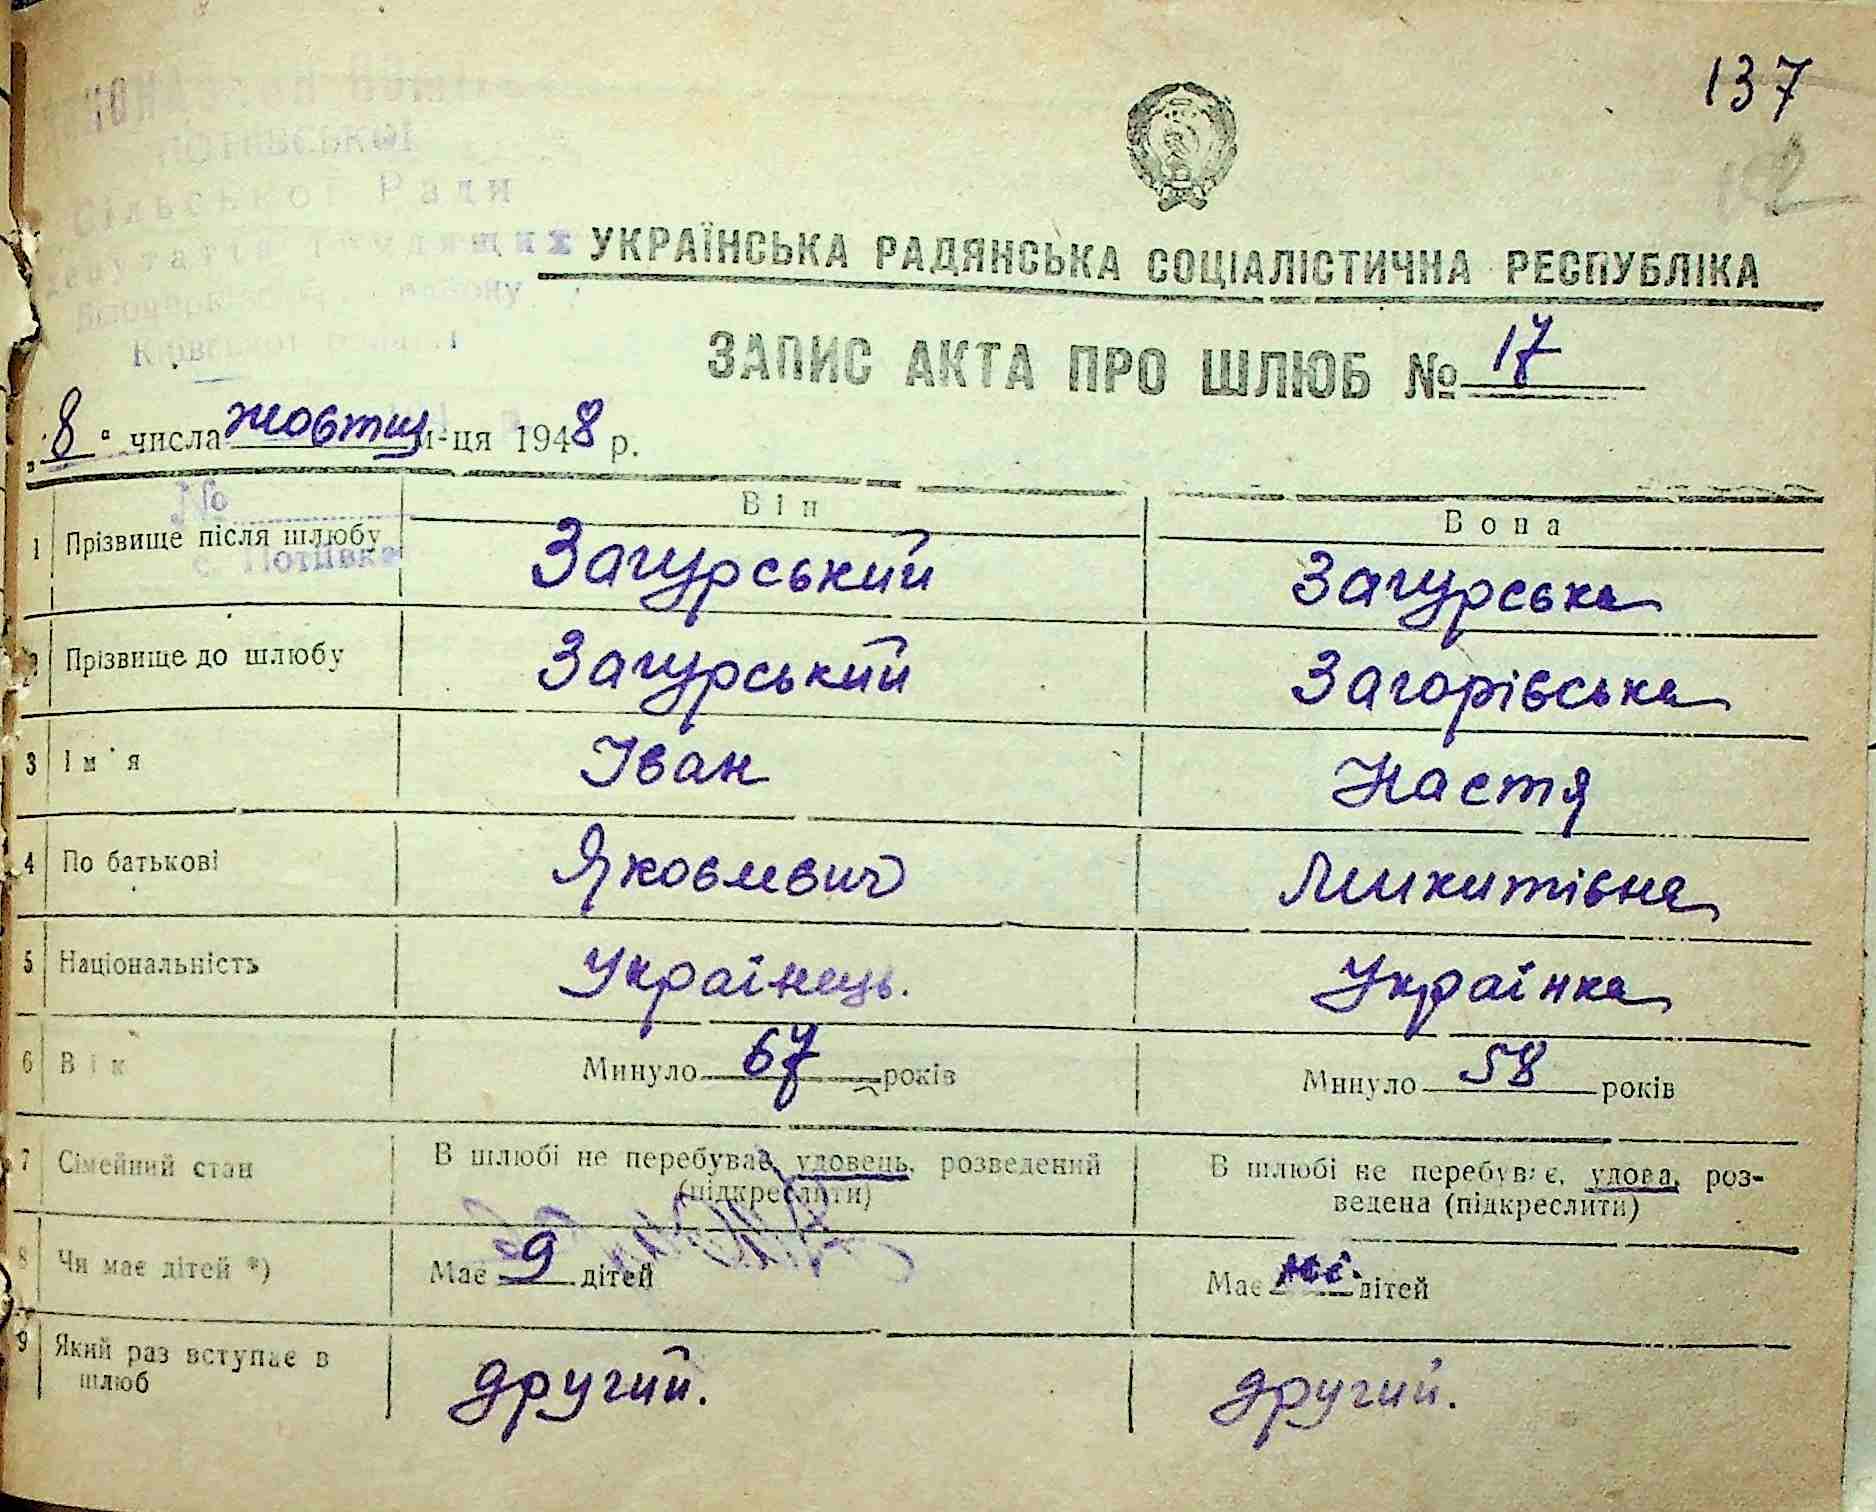 137
Сільської Ради
УКРАЇНСЬКА РАДЯНСЬКА СОЦІАЛІСТИЧНА РЕСПУБЛІКА
ЗАПИС АКТА ПРО ШЛЮБ № 17
„8“ числа жовтня м-ця 1948 р.
№
с. Потіївка
Він Вона
1 Прізвище після шлюбу Загурський Загурська
2 Прізвище до шлюбу Загурський Загорівська
3 Ім'я Іван Настя
4 По батькові Яковлевич Микитівна
5 Національність Українець. Українка
6 Вік Минуло 67 років Минуло 58 років
7 Сімейний стан В шлюбі не перебуває, удовець, розведений (підкреслити) В шлюбі не перебуває, удова, роз-
ведена (підкреслити)
8 Чи має дітей *) Має 9 дітей Має дітей
9 Який раз вступає в шлюб другий. другий.